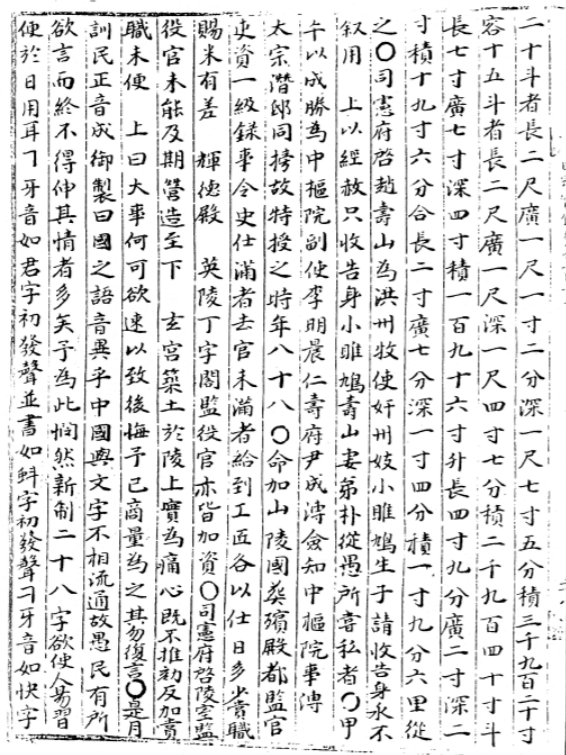 二十斗者長二尺廣一尺一寸二分深一尺七寸五分積三千九百二十寸
容十五斗者長二尺廣一尺深一尺四寸七分積二千九百四十寸斗
長七寸廣七寸深四寸積一百九十六寸升長四寸九分廣二寸深二
寸積十九寸六分合長二寸廣七分深一寸四分積一寸九分六里從
之〇司憲府啓趙壽山爲洪州牧使奸州妓小雎鳩生子請收告身永不
叙用 上以經赦只收告身小雎鳩壽山妻弟朴從愚所嘗私者〇甲
午以成勝爲中樞院副使李明晨仁壽府尹成溥僉知中樞院事溥
太宗潛邸同榜故特授之時年八十八〇命加山陵國葬殯殿都監官
吏資一級錄事令史仕滿者去官未滿者給到工匠各以仕日多少賞職
賜米有差 輝德殿 英陵丁字閣監役官亦皆加資〇司憲府啓陵室監
役官未能及期營造至下 玄宮築土於陵上實爲痛心既不推劾反加賞
職未便 上曰大事何可欲速以致後悔予已商量爲之其勿復言〇是月
訓民正音成御製曰國之語音異乎中國與文字不相流通故愚民有所
欲言而終不得伸其情者多矣予爲此憫然新制二十八字欲使人易習
便於日用耳ㄱ牙音如君字初發聲並書如蚪字初發聲ㅋ牙音如快字